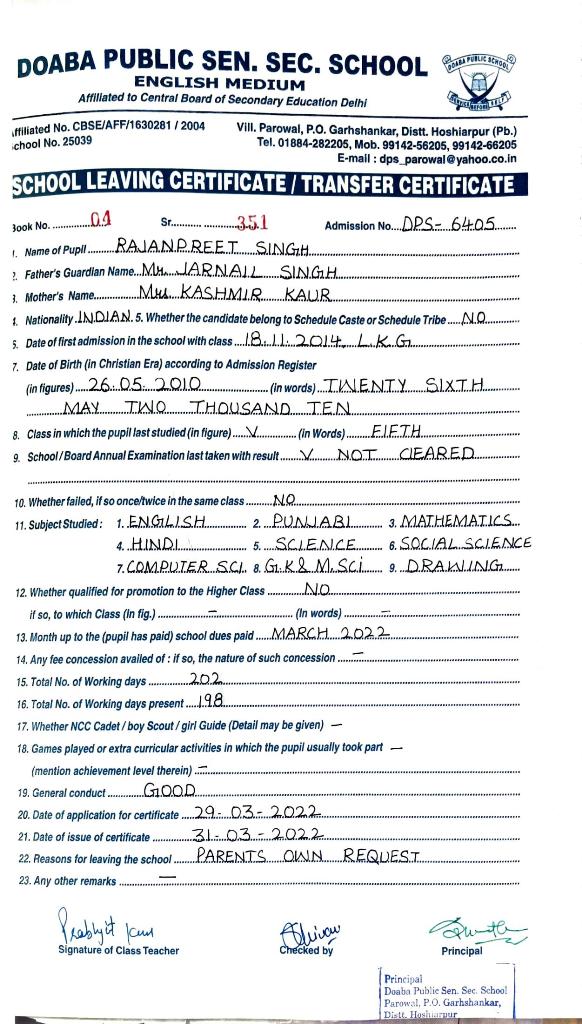 DOABA PUBLIC SEN. SEC. SCHOOL
DOABA PUBLIC SCHOOL
ENGLISH MEDIUM
Affiliated to Central Board of Secondary Education Delhi
SERVICE BEFORE SELF
ffiliated No. CBSE/AFF/1630281 / 2004
chool No. 25039
Vill. Parowal, P.O. Garhshankar, Distt. Hoshiarpur (Pb.)
Tel. 01884-282205, Mob. 99142-56205, 99142-66205
E-mail : dps_parowal@yahoo.co.in
SCHOOL LEAVING CERTIFICATE / TRANSFER CERTIFICATE
Book No. 01 Sr. 351 Admission No. DPS- 6405
1. Name of Pupil RAJANPREET SINGH
2. Father's Guardian Name Mr. JARNAIL SINGH
3. Mother's Name Mrs. KASHMIR KAUR
4. Nationality INDIAN 5. Whether the candidate belong to Schedule Caste or Schedule Tribe NO
6. Date of first admission in the school with class 18.11.2014, L.K.G
7. Date of Birth (in Christian Era) according to Admission Register
(in figures) 26.05.2010 (in words) TWENTY SIXTH
MAY TWO THOUSAND TEN
8. Class in which the pupil last studied (in figure) V (in Words) FIFTH
9. School / Board Annual Examination last taken with result V NOT CLEARED
10. Whether failed, if so once/twice in the same class NO
11. Subject Studied : 1. ENGLISH 2. PUNJABI 3. MATHEMATICS
4. HINDI 5. SCIENCE 6. SOCIAL SCIENCE
7. COMPUTER SCI. 8. G.K & M.SCI 9. DRAWING
12. Whether qualified for promotion to the Higher Class NO
if so, to which Class (In fig.) – (In words) –
13. Month up to the (pupil has paid) school dues paid MARCH 2022
14. Any fee concession availed of : if so, the nature of such concession –
15. Total No. of Working days 202
16. Total No. of Working days present 198
17. Whether NCC Cadet / boy Scout / girl Guide (Detail may be given) –
18. Games played or extra curricular activities in which the pupil usually took part –
(mention achievement level therein) –
19. General conduct GOOD
20. Date of application for certificate 29-03-2022
21. Date of issue of certificate 31-03-2022
22. Reasons for leaving the school PARENTS OWN REQUEST
23. Any other remarks –
Prabhjit Kaur
Signature of Class Teacher
Checked by
Principal
Principal
Doaba Public Sen. Sec. School
Parowal, P.O. Garhshankar,
Distt. Hoshiarpur